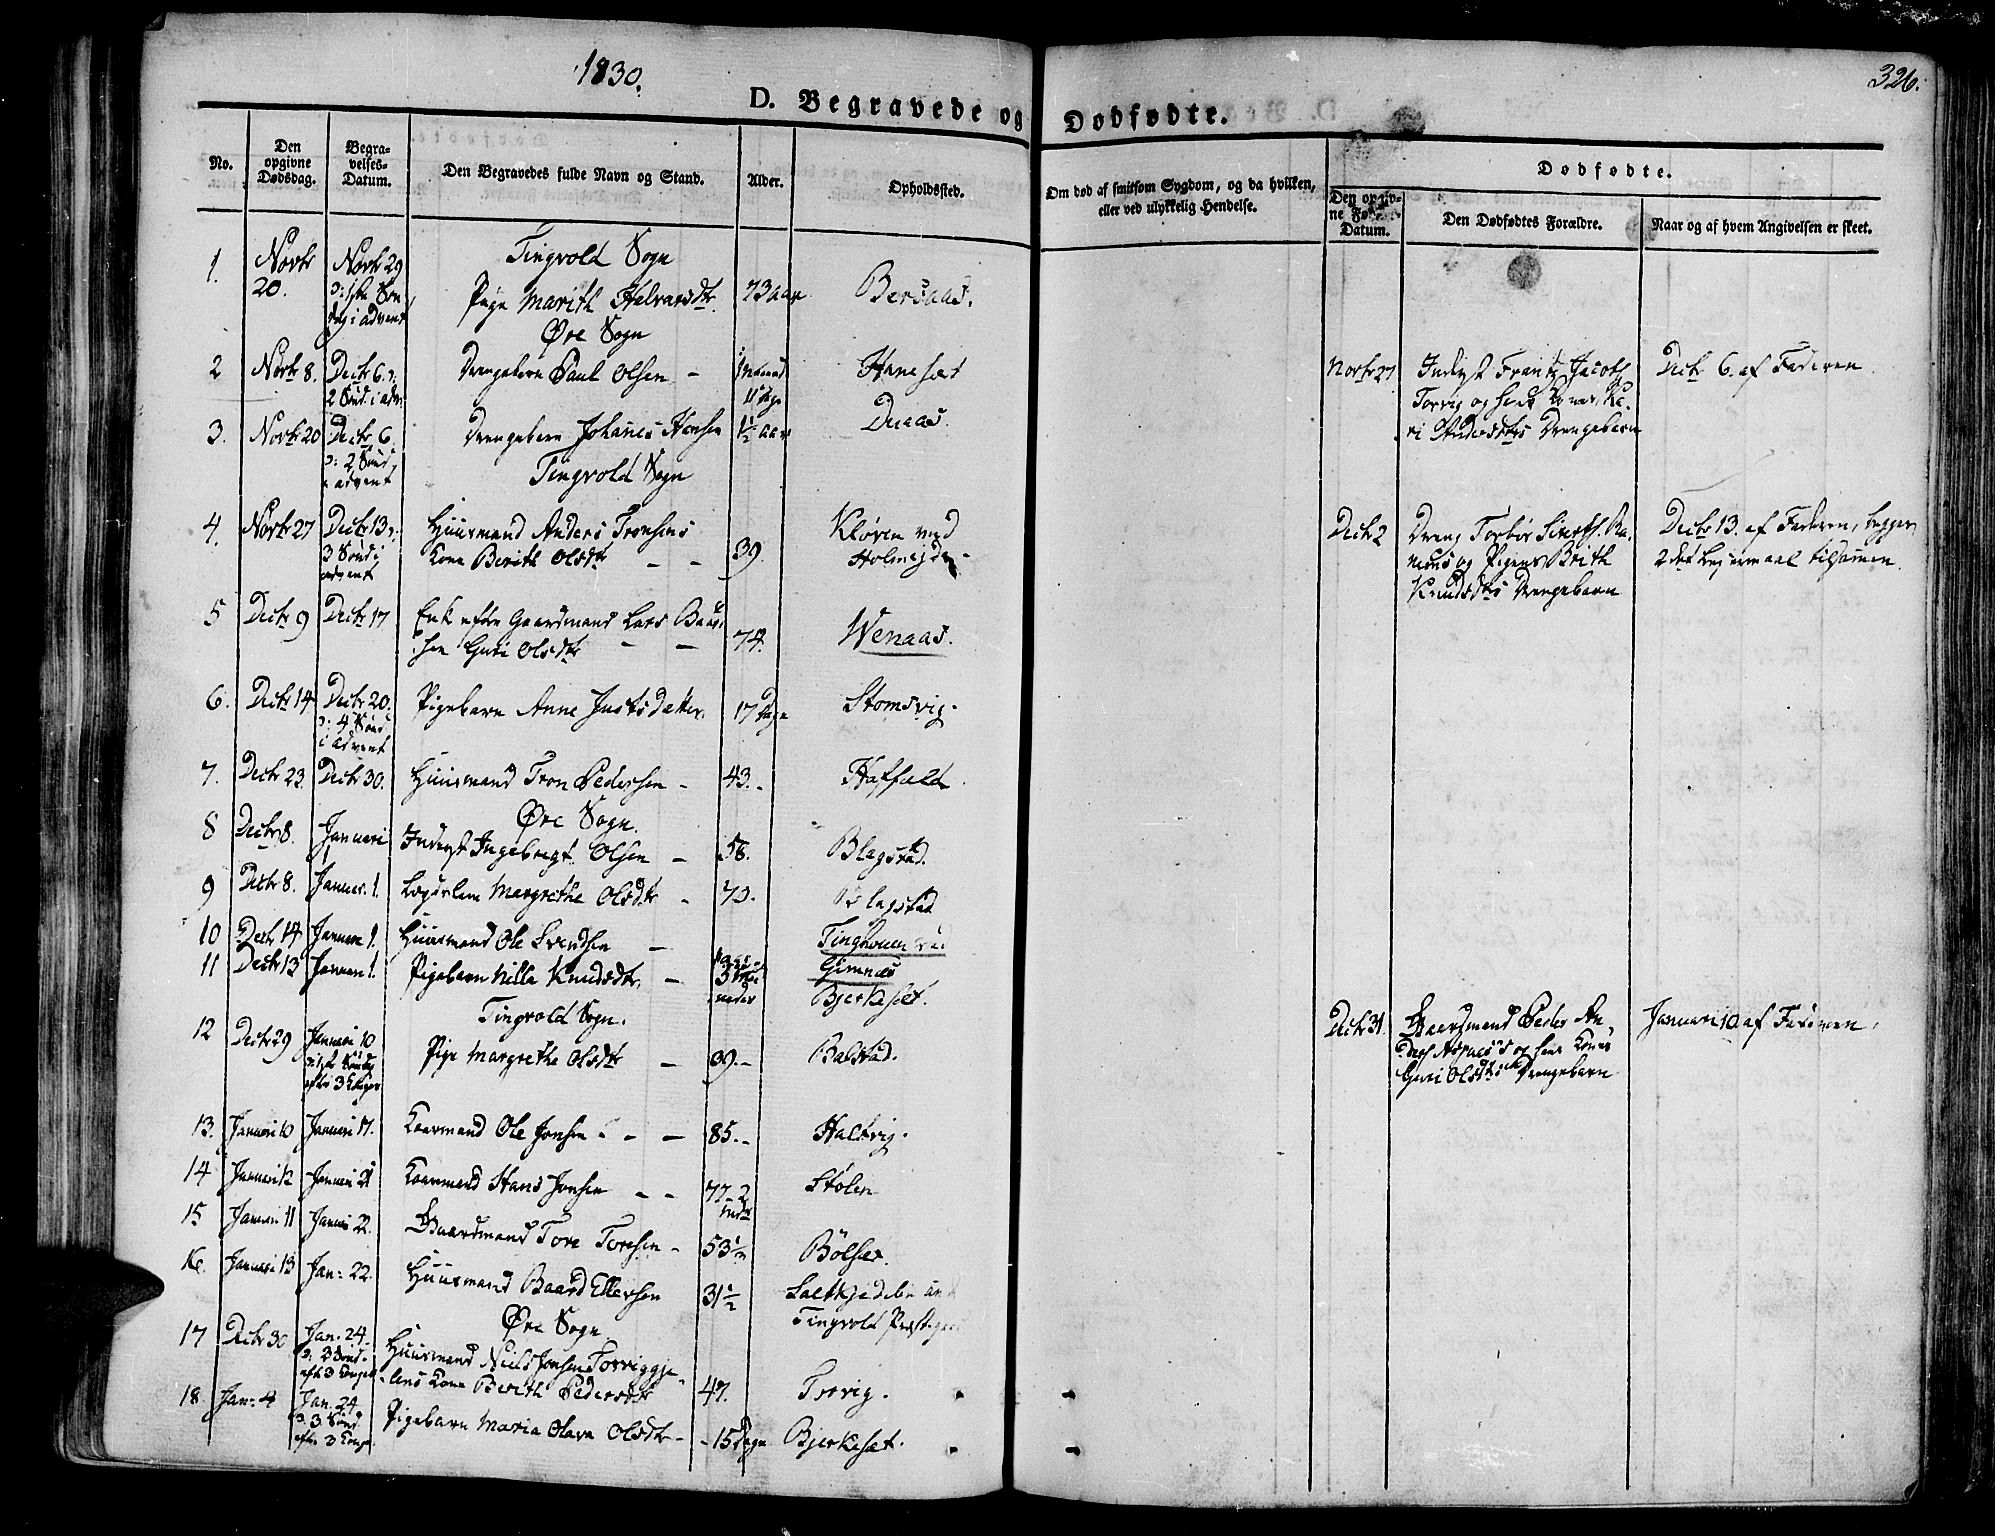 1830.
326.
D. Begravede og Dødfødte.
No.
Den opgivne Dødsdag.
Begravelses-Datum.
Den Begravedes fulde Navn og Stand.
Alder.
Opholdssted.
Om død af smitsom Sygdom, og da hvilken,
eller ved ulykkelig Hendelse.
Dødfødte.
Den opgivne Datum.
Den Dødfødtes Forældre.
Naar og af hvem Angivelsen er skeet.
Tingvold Sogn
1. Novbr 20. Novbr 29 Pige Marith Halvarsdtr. 73 aar Bersaas.
1ste Søndag i advent
Øre Sogn
2 Novbr 8. Decbr 6 Drengebarn Paul Olsen - 11 dage Hanesæt
2 Sønd. i adv.
Novbr 27 Inderst Frantz Jacobs. Torvig og hans Kones Kari Andersdtrs Drengebarn
Decbr 6. af Faderen
3. Novbr 20 Decbr 6. Drengebarn Johanes Hansen 1½ aar Duaas.
2 Sønd. i advent
Tingvold Sogn
4. Novbr 27 Decbr 13 Huusmand Anders Tronsens
3 Sønd i advent Kone Berith Olsdtr - - 39. Kløven ved
Decbr 2 Dreng Torbør Siverts. og Pigens Brith Knudsdtrs Drengebarn
Decbr 13. af Faderen, begges
2det Lejermaal tilsamen
5 Decbr 9 Decbr 17 Enke efter Gaardmand Lars
Guri Olsdtr - - 74. Wenaas.
6. Decbr 14 Decbr 20. Pigebarn Anne Justsdatter. 17 Dage Stomsvig.
4 Sønd i advent
7. Decbr 23. Decbr 30. Huusmand Tron Pedersen - 43. - Haffeld.
Øre Sogn.
8 Decbr 8. Januari Inderst Ingebrigt Olsen - 58. Blagstad.
9 Decbr 8. Januar. 1. Margrethe Olsdtr - 70. Blagstad
10 Decbr 14 Januar 1. Huusmand Ole Svendsen - Tinghouen
11 Decbr 13 Januari 1. Pigebarn Nilla Knudsdtr. - Gimnæs
Bjerkeset.
Tingvold Sogn.
12 Decbr 29 Januari 10 Pige Margrethe Olsdtr - 39. - Balstad.
Decbr 31 Gaardmand Peder
og hans Kones
Guri Olsdtrs Drengebarn
Januari 10 af Faderen.
13. Januari 10 Januari 17. Kaarmand Ole Jonsen - - - 85. - Haltvig.
14 Januari 12 Januari 21 Kaarmand Hans Jonsen - - 77 - 2 Stølen
15 Januari 11 Januar 22. Gaardmand Tore Toresen - 53½ Bølset
16. Januari 13 Jan: 22. Huusmand Baard Ellersen 31½ Saltkjedelen und
Tingvold Præstegaard
Øre Sogn
17 Decbr 30 Jan. 24 Huusmand Niels Jonsen Torviggje-
3 Sønd. eft. 3 Konger lens Kone Berith Pedersdtr 47. Torvig.
18. Jan: 4 Jan. 24 Pigebarn Maria Olava Olsdtr - - 15 Dage Bjerkeset.
3 Sønd. efter 3 Konger